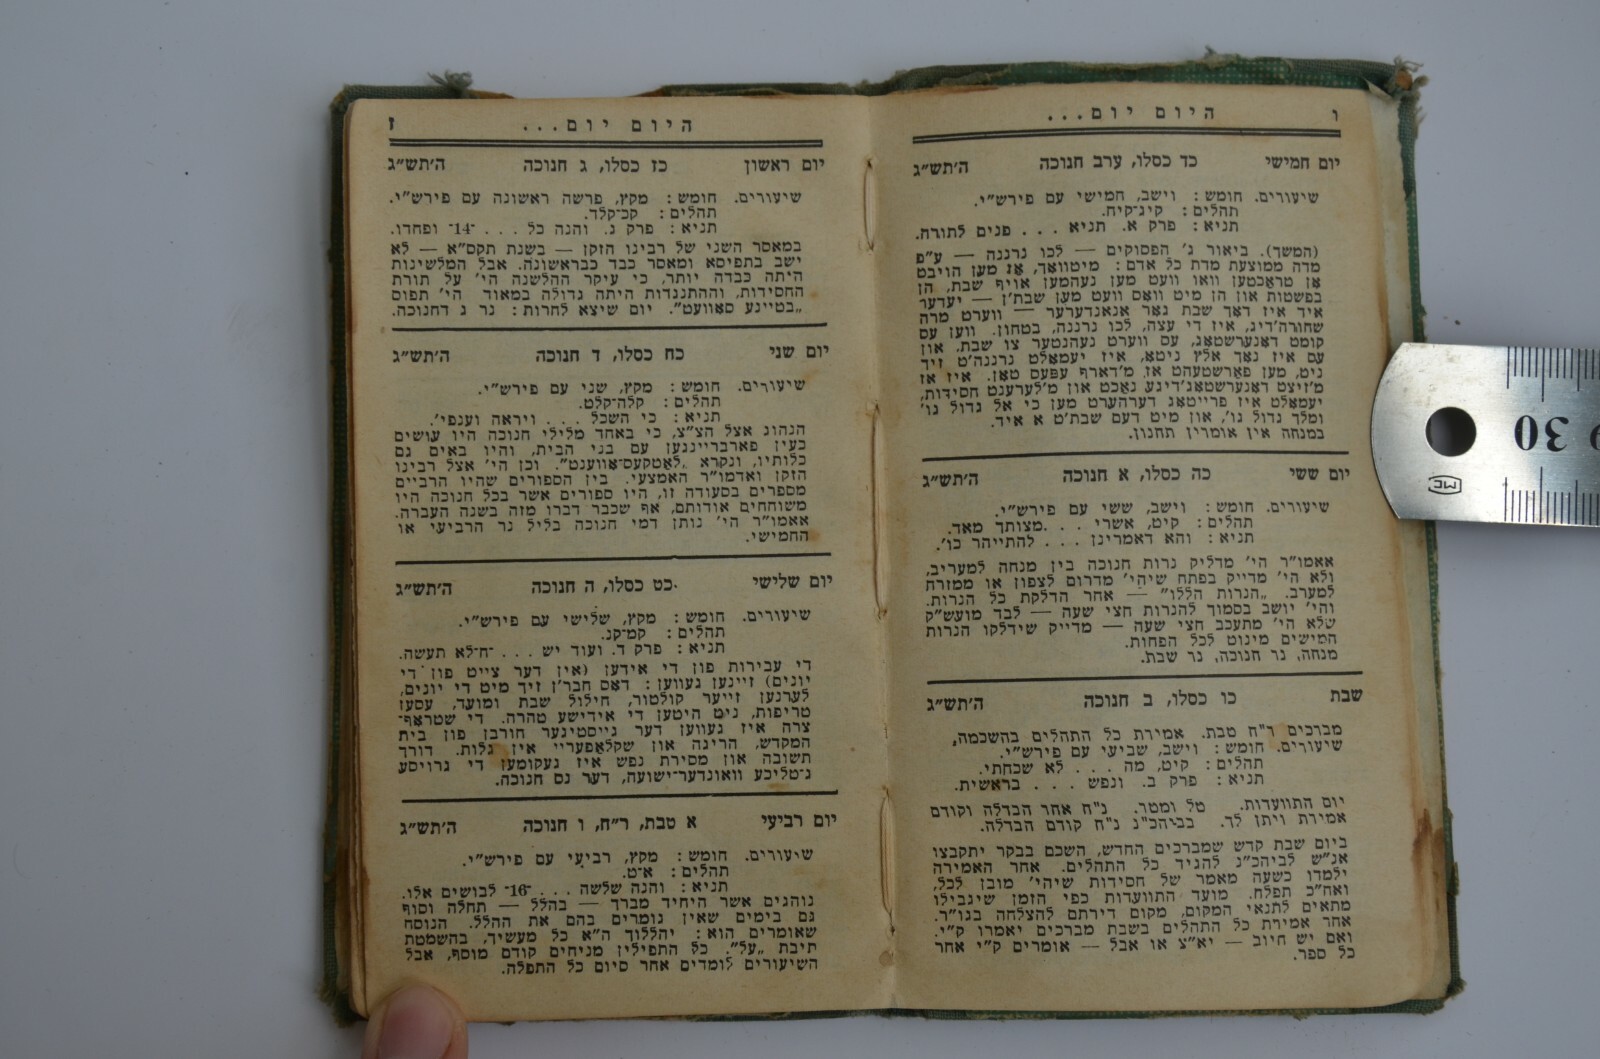 ו היום יום...
יום חמישי כד כסלו, ערב חנוכה ה׳תש״ג
שיעורים. חומש: וישב, חמישי עם פירש״י.
תהלים: קיג־קיח.
תניא: פרק א. תניא . . . פנים לתורה.
(המשך). ביאור ג׳ הפסוקים — לכו נרננה — ע״פ
מדה ממוצעת מדת כל אדם: מיטוואך, אַז מען הויבט
אן טראַכטען וואו וועט מען נעהמען אויף שבת, הן
בפשטות און הן מיט וואָס וועט מען שבת׳ן — יעדער
איד איז דאָך שבת גאָר אנאנדערער — ווערט מרה
שחורה׳דיג, איז די עצה, לכו נרננה, בטחון. ווען עס
קומט דאָנערשטאג, עס ווערט נעהנטער צו שבת. און
עס איז נאָך אלץ ניטאָ, איז יעמאָלט נרננה׳ט זיך
ניט, מען פאַרשטעהט אז מ׳דארף עפּעס טאָן. איז אז
מ׳זיצט דאָנערשטאג׳דיגע נאַכט און מ׳לערענט חסידות,
יעמאָלט איז פרייטאג דערהערט מען כי אל גדול גו׳
ומלך גדול גו׳, און מיט דעם שבת׳ט א איד.
במנחה אין אומרין תחנון.
יום ששי כה כסלו, א חנוכה ה׳תש״ג
שיעורים. חומש: וישב, ששי עם פירש״י.
תהלים: קיט, אשרי . . .מצותך מאד.
תניא: והא דאמרינן . . . להתייהר כו׳.
אאמו״ר הי׳ מדליק נרות חנוכה בין מנחה למעריב,
ולא הי׳ מדייק בפתח שיהי׳ מדרום לצפון או ממזרח
למערב. „הנרות הללו״ — אחר הדלקת כל הנרות.
והי׳ יושב בסמוך להנרות חצי שעה — לבד מועש״ק
שלא הי׳ מתעכב חצי שעה — מדייק שידלקו הנרות
חמישים מינוט לכל הפחות.
מנחה, נר חנוכה, נר שבת.
שבת כו כסלו, ב חנוכה ה׳תש״ג
מברכים ר״ח טבת. אמירת כל התהלים בהשכמה,
שיעורים. חומש: וישב, שביעי עם פירש״י.
תהלים: קיט, מה . . . לא שכחתי.
תניא: פרק ב. ונפש . . . בראשית.
יום התוועדות. טל ומטר. נ״ח אחר הבדלה וקודם
אמירת ויתן לך. בביהכ״נ נ״ח קודם הבדלה.
ביום שבת קדש שמברכים החדש, השכם בבקר יתקבצו
אנ״ש לביהכ״נ להגיד כל התהלים. אחר האמירה
ילמדו כשעה מאמר של חסידות שיהי׳ מובן לכל,
ואח״כ תפלה. מועד התוועדות כפי הזמן שיגבילו
מתאים לתנאי המקום, מקום דירתם להצלחה בגו״ר.
אחר אמירת כל התהלים בשבת מברכים יאמרו ק״י.
ואם יש חיוב — יא״צ או אבל — אומרים ק״י אחר
כל ספר.
היום יום... ז
יום ראשון כז כסלו, ג חנוכה ה׳תש״ג
שיעורים. חומש: מקץ, פרשה ראשונה עם פירש״י.
תהלים: קכ־קלד.
תניא: פרק ג. והנה כל . . . ־14־ ופחדו.
במאסר השני של רבינו הזקן — בשנת תקס״א — לא
ישב בתפיסא ומאסר כבד כבראשונה. אבל המלשינות
היתה כבדה יותר, כי עיקר ההלשנה הי׳ על תורת
החסידות, וההתנגדות היתה גדולה במאוד הי׳ תפוס
„בטיינע סאָוועט״. יום שיצא לחרות: נר ג דחנוכה.
יום שני כח כסלו, ד חנוכה ה׳תש״ג
שיעורים. חומש: מקץ, שני עם פירש״י.
תהלים: קלה־קלט.
תניא: כי השכל . . . ויראה וענפי׳.
הנהוג אצל הצ״צ, כי באחד מלילי חנוכה היו עושים
כעין פארברייינגען עם בני הבית, והיו באים גם
כלותיו, ונקרא „לאַטקעס־אָווענט״. וכן הי׳ אצל רבינו
הזקן ואדמו״ר האמצעי. בין הספורים שהיו הרביים
מספרים בסעודה זו, היו ספורים אשר בכל חנוכה היו
משוחחים אודותם, אף שכבר דברו מזה בשנה העברה.
אאמו״ר הי׳ נותן דמי חנוכה בליל נר הרביעי או
החמישי.
יום שלישי כט כסלו, ה חנוכה ה׳תש״ג
שיעורים. חומש: מקץ, שלישי עם פירש״י.
תהלים: קמ־קנ.
תניא: פרק ד. ועוד יש . . . ־ח־לא תעשה.
די עבירות פון די אידען (אין דער צייט פון די
יונים) זיינען געווען: דאָס חבר׳ן זיך מיט די יונים,
לערנען זייער קולטור, חילול שבת ומועד, עסען
טריפות, ניט היטען די אידישע טהרה. די שטראף־
צרה איז געווען דער גייסטיגער חורבן פון בית
המקדש, הריגה און שקלאַפעריי אין גלות. דורך
תשובה און מסירת נפש איז געקומען די גרויסע
ג־טליכע וואונדער־ישועה, דער נס חנוכה.
יום רביעי א טבת, ר״ח, ו חנוכה ה׳תש״ג
שיעורים. חומש: מקץ, רביעי עם פירש״י.
תהלים: א־ט.
תניא: והנה שלשה . . . ־16־ לבושים אלו.
נוהגים אשר היחיד מברך — בהלל — תחלה וסוף
גם בימים שאין גומרים בהם את ההלל. הנוסח
שאומרים הוא: יהללוך ה״א כל מעשיך, בהשמטת
תיבת „על״. כל התפילין מניחים קודם מוסף, אבל
השיעורים לומדים אחר סיום כל התפלה.
30